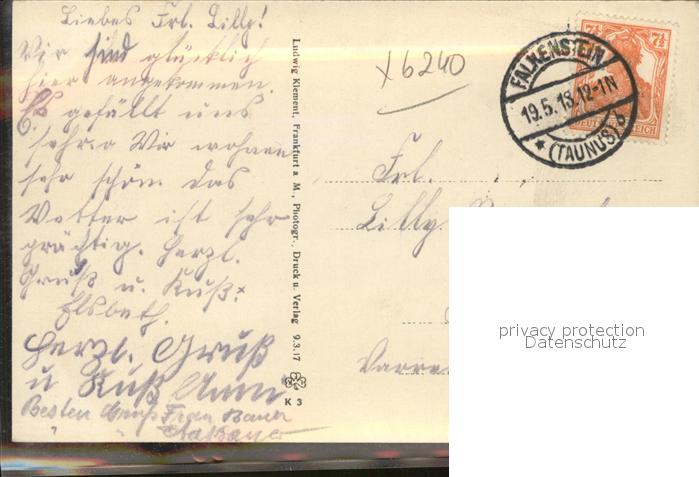 Liebes Frl. Lilly!
Wir sind glücklich
hier angekommen.
Es gefällt uns
sehr. Wir wohnen
sehr schön. Das
Wetter ist sehr
prächtig. Herzl.
Gruß u. Kuß.
Elsbeth.
Herzl. Gruß
u Kuß Anni
Besten Gruß Frau Bauer
Ludwig Klement, Frankfurt a M., Photogr., Druck u. Verlag 9.3.17
K 3
x6240
FALKENSTEIN
19.5.18.12-1N
* (TAUNUS) b
7½ 7½
DEUTSCHES REICH
Frl.
Lilly
privacy protection
Datenschutz